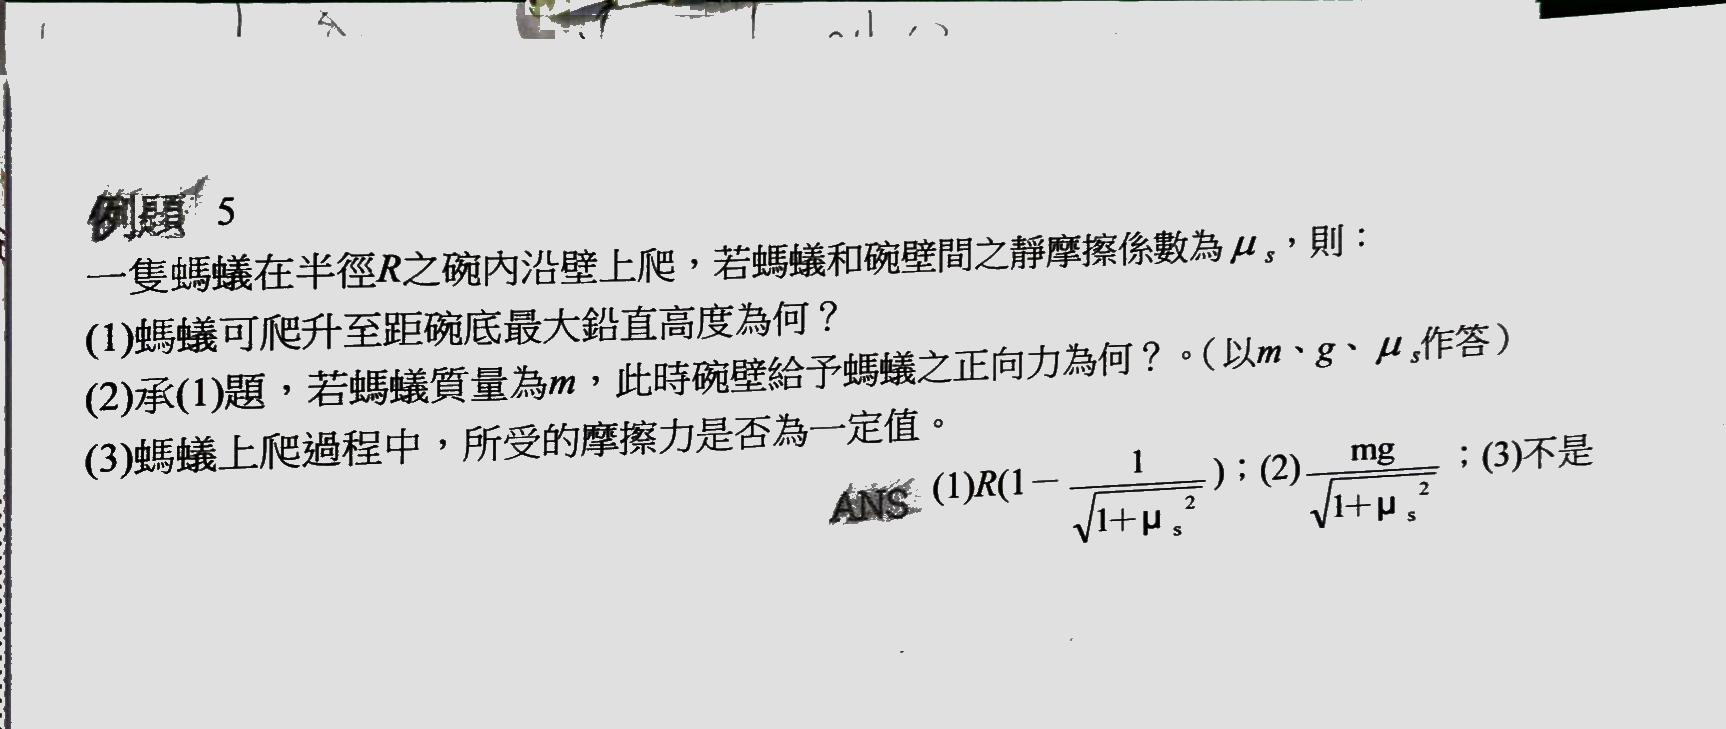 例題 5
一隻螞蟻在半徑R之碗內沿壁上爬，若螞蟻和碗壁間之靜摩擦係數為μs，則：
(1)螞蟻可爬升至距碗底最大鉛直高度為何？
(2)承(1)題，若螞蟻質量為m，此時碗壁給予螞蟻之正向力為何？。（以m、g、μs作答）
(3)螞蟻上爬過程中，所受的摩擦力是否為一定值。
ANS (1)R(1－1/√(1+μs²))；(2)mg/√(1+μs²)；(3)不是